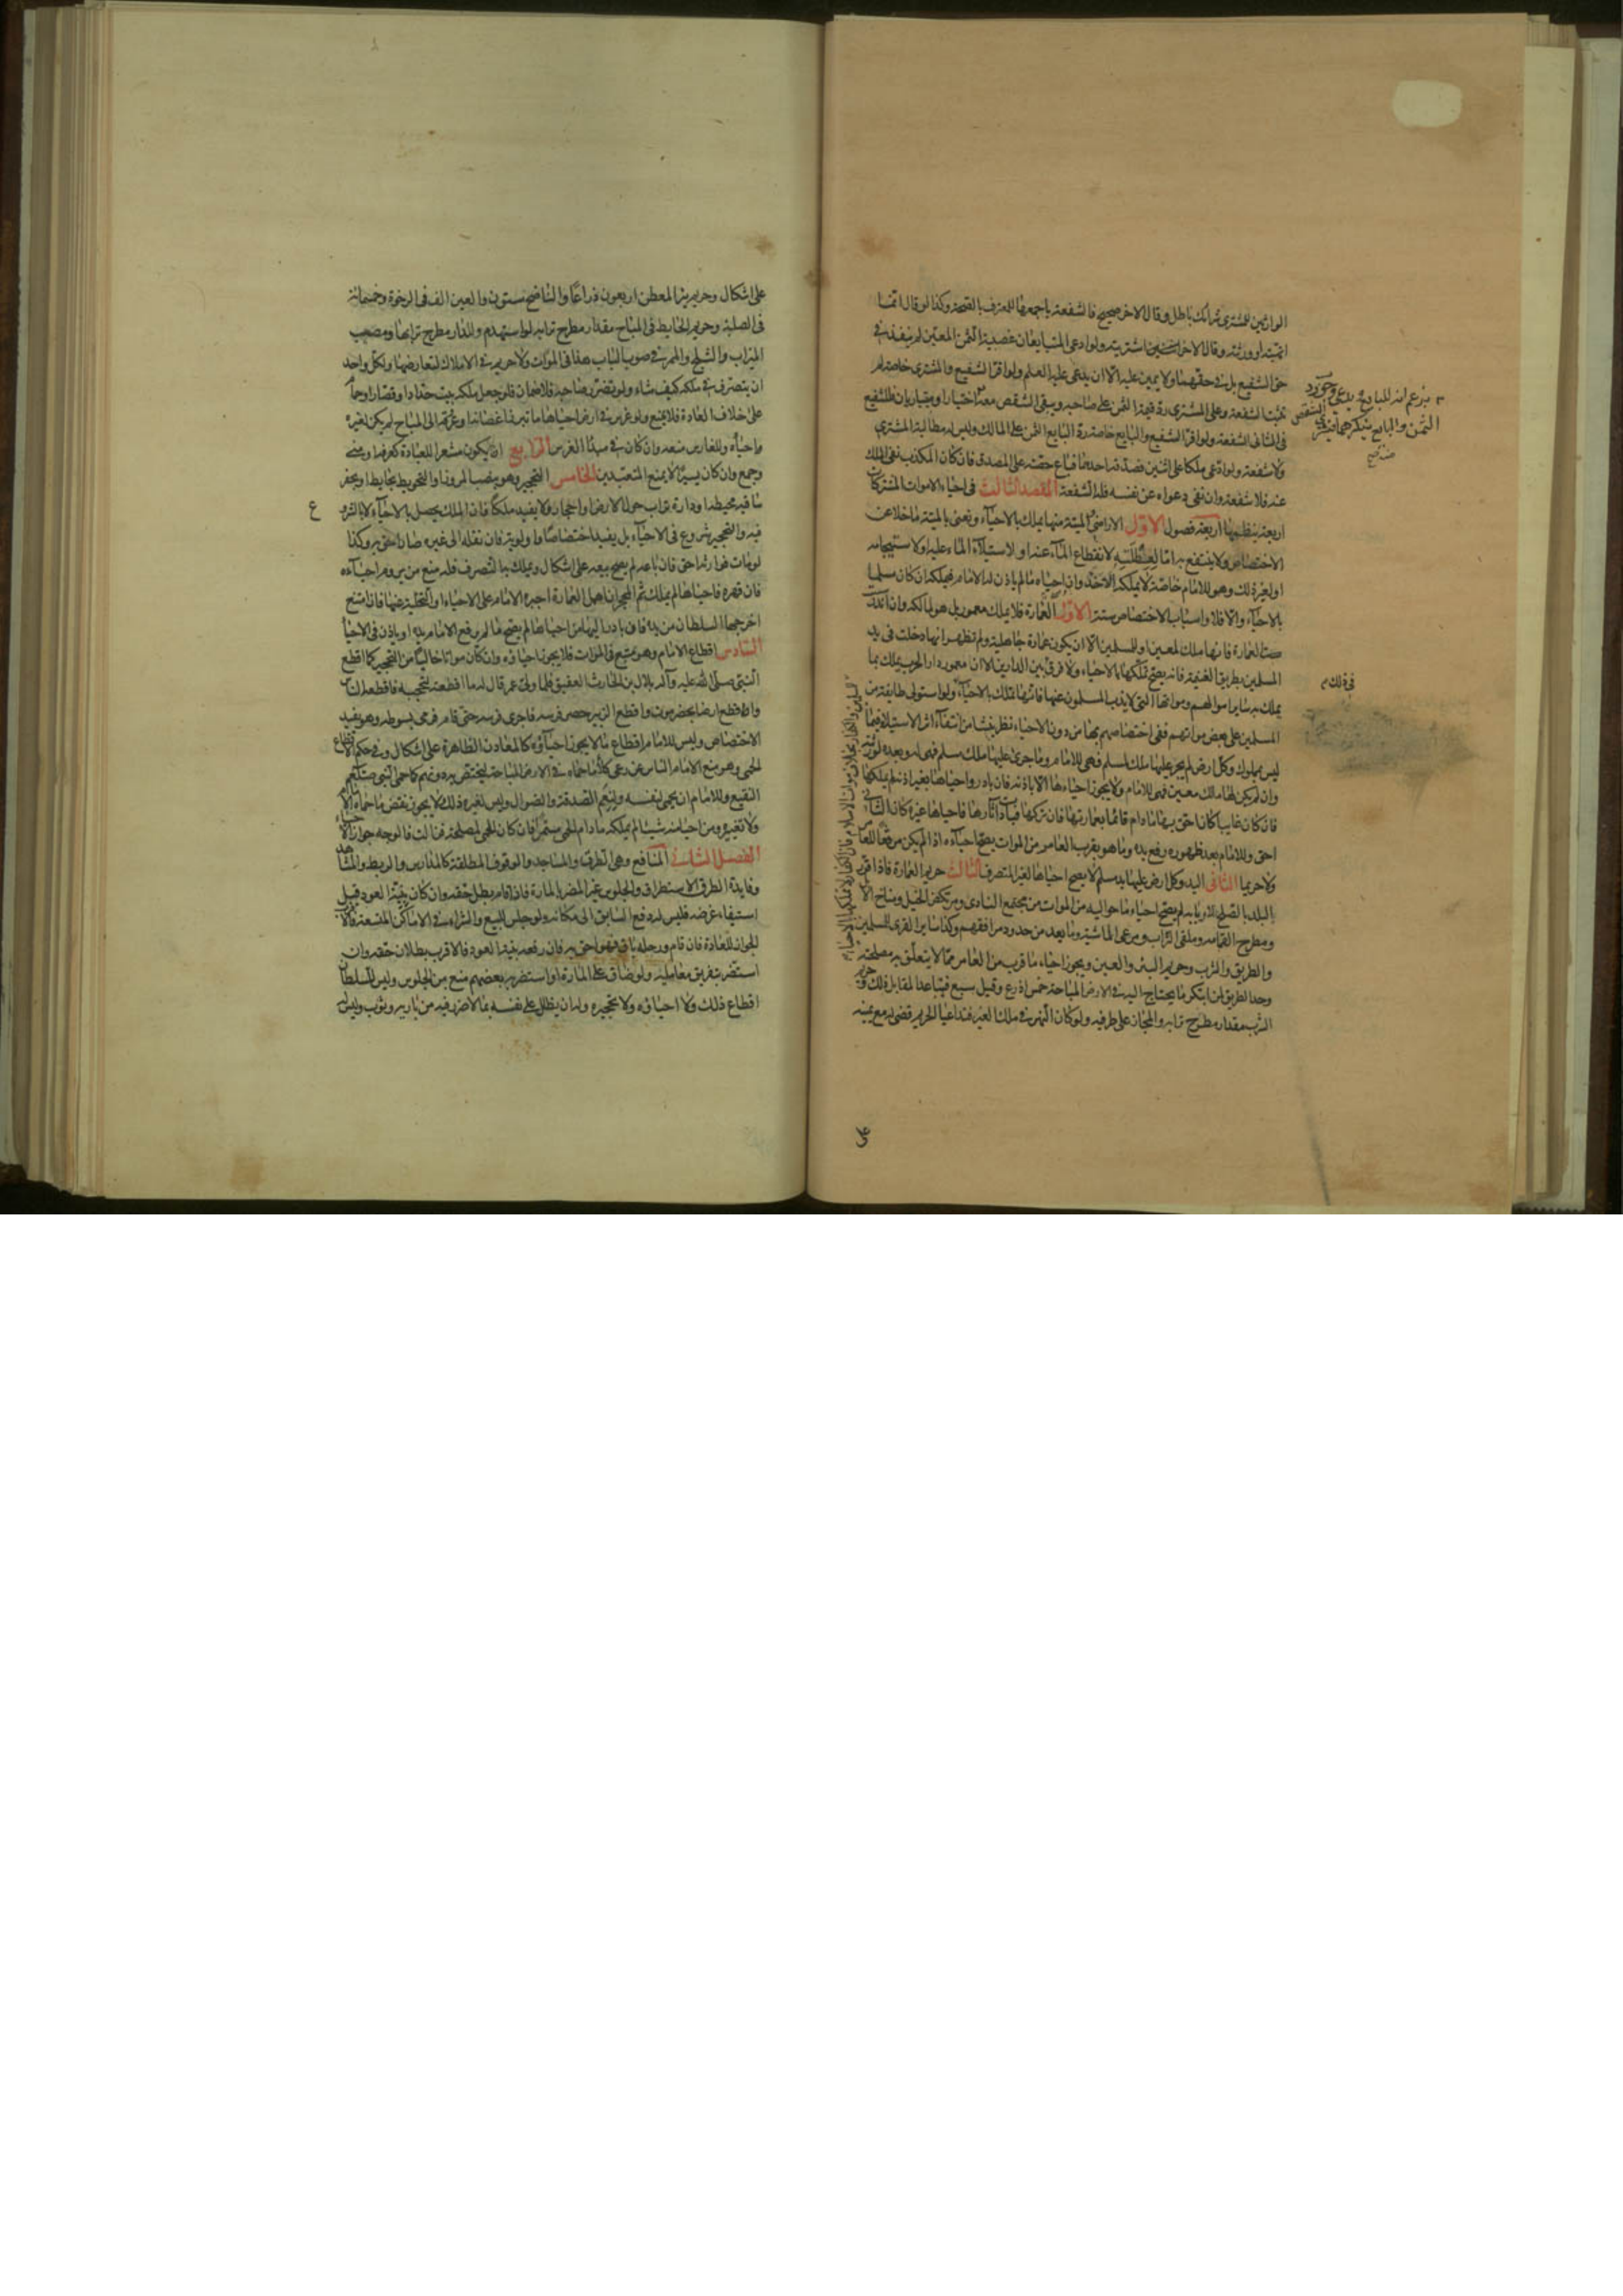 الوارثين للمشترى شرائك باطل وقال الاخر صحيح فالشفعة باجمعها للمعترف بالصحة وكذا لو قال انما
اتهبته او ورثته وقال الاخر اشتريته ولو ادعى المتبايعان غصبية الثمن المعين لم ينفذ فى
حق الشفيع بل فى حقهما ولا يمين عليه الا ان يدعى عليه العلم ولو اقر الشفيع والمشترى خاصة لم
تثبت الشفعة وعلى المشترى رد قيمة الثمن على صاحبه ويبقى الشقص معه
فى الثانى الشفعة ولو اقر الشفيع والبايع خاصة رد البايع الثمن على المالك وليس له مطالبة المشترى
ولا شفعة ولو ادعى ملكا على اثنين فصدقه احدهما فباع حصته على المصدق فان كان المكذب نفى الملك
عنه فلا شفعة وان نفى دعواه عن نفسه فله الشفعة المقصد الثالث فى احياء الموات المشتركات
اربعة ينظمها اربعة فصول الاول الاراضى الميتة منها يملك بالاحياء ونعنى بالميتة ما خلا عن
الاختصاص ولا ينتفع به اما لعطلته لانقطاع الماء عنه او لاستيلاء الماء عليه او لاستيجامه
او لغير ذلك وهو للامام خاصة لا يملكه الاخذ وان احياه ما لم ياذن له الامام فيملكه ان كان مسلما
بالاحياء والا فلا واسباب الاختصاص ستة الاول العمارة فلا يملك معمور بل هو لمالكه وان اندرست
العمارة فانها ملك لمعين او للمسلمين الا ان يكون عمارة جاهلية ولم تظهر انها دخلت فى يد
المسلمين بطريق الغنيمة فانه يصح تملكها بالاحياء ولا فرق بين الدارين الا ان معمور دار الحرب يملك بما
يملك به ساير اموالهم ومواتها التى لا يذب المسلمون عنها فانها تملك بالاحياء ولو استولى طايفة من
المسلمين على بعض مواتهم ففى اختصاصهم بها من دون الاحياء نظر ينشا من انتفاء اثر الاستيلاء فيما
ليس بمملوك وكل ارض لم يجر عليها ملك المسلم فهى للامام وما جرى عليها ملك مسلم فهى له وبعده لورثته
وان لم يكن لها مالك معين فهى للامام ولا يجوز احياءها الا باذنه فان بادر واحياها بغير اذنه لم يملكها
فان كان غايبا كان احق بها ما دام قائما بعمارتها فان تركها فبادت آثارها فاحياها غيره كان الثانى
احق وللامام بعد ظهوره رفع يده وما هو بقرب العامر من الموات يصح احياءه اذا لم يكن مرفقا للعامر
ولا حريما الثانى اليد وكل ارض عليها يد مسلم لا يصح احياها لغير المتصرف الثالث حريم العمارة فاذا قرر
البلد بالصلح لاربابه لم يصح احياء ما حواليه من الموات من مجتمع النادى ومرتكض الخيل ومناخ الابل
ومطرح القمامه وملقى التراب ومرعى الماشية وما يعد من حدود مرافقهم وكذا ساير القرى للمسلمين
والطريق والشرب وحريم البئر والعين ويجوز احياء ما قرب من العامر مما لا يتعلق به مصلحته
وحد الطريق لمن ابتكر ما يحتاج اليه فى الارض المباحة خمس اذرع وقيل سبع فيتباعد المقابل ذلك وحريم
الشرب مقدار مطرح ترابه والمجاز على طرفيه ولو كان النهر فى ملك الغير فتداعيا الحريم قضى له مع يمينه
فى ذلك
على اشكال وحريم بئر المعطن اربعون ذراعا والناضح ستون والعين الف فى الرخوة وخمسمائة
فى الصلبة وحريم الحايط فى المباح مقدار مطرح ترابه لو استهدم وللدار مطرح ترابها ومصب
الميزاب والثلج والممر فى صوب الباب هذا فى الموات ولا حريم فى الاملاك لتعارضها ولكل واحد
ان يتصرف فى ملكه كيف شاء ولو تضرر صاحبه فلا ضمان فلو جعل ملكه بيت حداد او قصار او حمام
على خلاف العادة فلا يمنع ولو غرس فى ارض احياها ما تبرز اغصانها وعروقها الى المباح لم يكن لغيره
احياؤه وللغارس منعه وان كان فى مبدا الغرس الرابع ان يكون مشعرا للعبادة كعرفه ومنى
وجمع وان كان يسيرا لا يمنع المتعبدين الخامس التحجير وهو بنصب المروز او التحويط بحايط او بحفر
ساقيه محيطه او دارة تراب حول الارض او احجار ولا يفيد ملكا فان الملك يحصل بالاحياء لا بالشروع
فيه والتحجير شروع فى الاحياء بل يفيد اختصاصا واولوية فان نقله الى غيره صار احق به وكذا
لو مات فوارثه احق فان باعه لم يصح بيعه على اشكال ويملك به التصرف فله منع من يروم احياءه
فان قهره فاحياها لم يملك ثم المحجر ان اهمل العمارة اجبره الامام على الاحياء او التخلية عنها فان امتنع
اخرجها السلطان من يده فان بادر اليها من احياها لم يصح ما لم يرفع الامام يده او ياذن فى الاحياء
السادس اقطاع الامام وهو متبع فى الموات فلا يجوز احياؤه وان كان مواتا خاليا من التحجير كما اقطع
النبى صلى الله عليه وآله بلال بن الحارث العقيق فلما ولى عمر قال له ما اقطعته لتحجبه فاقطعه الناس
واقطع ارضا بحضرموت واقطع الزبير حضر فرسه فاجرى فرسه حتى قام فرمى بسوطه وهو يفيد
الاختصاص وليس للامام اقطاع ما لا يجوز احياؤه كالمعادن الظاهرة على اشكال وفى حكم الاقطاع
الحمى وهو منع الامام الناس عن رعى كلاء ما حماه فى الارض المباحة ليختص به دونهم كما حمى النبى صلعم
النقيع وللامام ان يحمى لنفسه ولنعم الصدقة والضوال وليس لغيره ذلك ولا يجوز نقض ما حماه الامام
ولا تغييره ومن احيا منه شيئا لم يملكه ما دام الحمى مستمرا فان كان الحمى لمصلحة فزالت فالوجه جواز الاحياء
الفصل الثانى المنافع وهى الطرق والمساجد والوقوف المطلقة كالمدارس والربط والمشاهد
وفايدة الطرق الاستطراق والجلوس غير المضر بالمارة فاذا قام بطل حقه وان كان بنية العود قبل
استيفاء غرضه فليس له دفع السابق الى مكانه ولو جلس للبيع والشراء فى الاماكن المتسعة فالاقرب
الجواز للعادة فان قام ورحله باق فهو احق به فان رفعه بنية العود فالاقرب بطلان حقه وان
استضر بتفريق معامليه ولو ضاق على المارة او استضر به بعضهم منع من الجلوس وليس للسلطان
اقطاع ذلك ولا احياؤه ولا تحجيره وله ان يظلل على نفسه بما لا ضرر فيه من بارية وثوب وليس له
ع